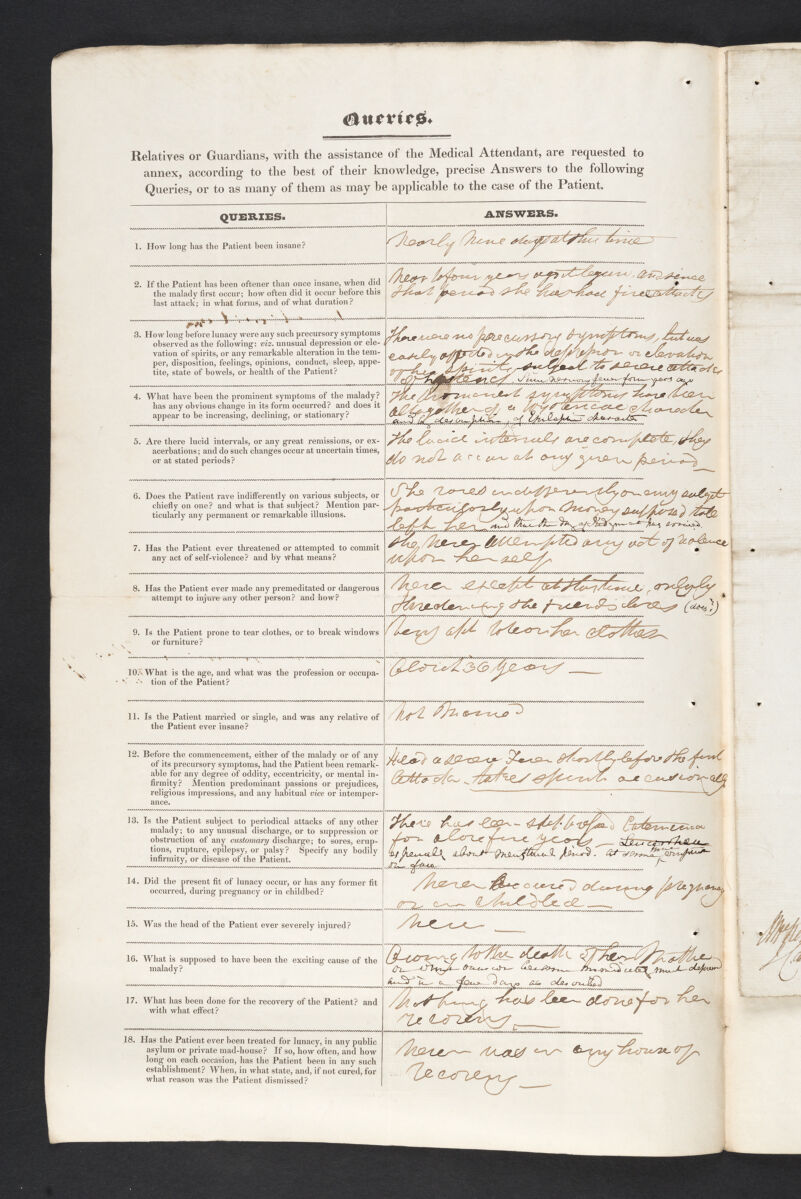 Queries.
Relatives or Guardians, with the assistance of the Medical Attendant, are requested to
annex, according to the best of their knowledge, precise Answers to the following
Queries, or to as many of them as may be applicable to the case of the Patient.
QUERIES.
ANSWERS.
1. How long has the Patient been insane?
Nearly Nine days at this time
2. If the Patient has been oftener than once insane, when did
the malady first occur; how often did it occur before this
last attack; in what forms, and of what duration?
Near to four years ago it began, and since
that period she has had five attacks
3. How long before lunacy were any such precursory symptoms
observed as the following: viz. unusual depression or ele-
vation of spirits, or any remarkable alteration in the tem-
per, disposition, feelings, opinions, conduct, sleep, appe-
tite, state of bowels, or health of the Patient?
There were no precursory symptoms, but was
easily affected by the depression or elevation
of her spirits, subject to severe attacks
of hysterics, nervous fever four years ago
4. What have been the prominent symptoms of the malady?
has any obvious change in its form occurred? and does it
appear to be increasing, declining, or stationary?
The prominent symptoms have been
altogether of a hysterical character
of Epileptic character
5. Are there lucid intervals, or any great remissions, or ex-
acerbations; and do such changes occur at uncertain times,
or at stated periods?
The lucid intervals are complete, they
do not occur at any given period
6. Does the Patient rave indifferently on various subjects, or
chiefly on one? and what is that subject? Mention par-
ticularly any permanent or remarkable illusions.
She raves indifferently on any subject
particularly upon money supposed to be
left her and that the day of Judgment has arrived
7. Has the Patient ever threatened or attempted to commit
any act of self-violence? and by what means?
She Never Attempted any act of violence
upon her self
8. Has the Patient ever made any premeditated or dangerous
attempt to injure any other person? and how?
Never except at this time, only by
threatening the friends lives
9. Is the Patient prone to tear clothes, or to break windows
or furniture?
Very apt to tear her clothes
10. What is the age, and what was the profession or occupa-
tion of the Patient?
About 36 years
11. Is the Patient married or single, and was any relative of
the Patient ever insane?
Not Married
12. Before the commencement, either of the malady or of any
of its precursory symptoms, had the Patient been remark-
able for any degree of oddity, eccentricity, or mental in-
firmity? Mention predominant passions or prejudices,
religious impressions, and any habitual vice or intemper-
ance.
Head a severe Fever shortly before the first
Attack. takes spirits occasionally
13. Is the Patient subject to periodical attacks of any other
malady; to any unusual discharge, or to suppression or
obstruction of any customary discharge; to sores, erup-
tions, rupture, epilepsy, or palsy? Specify any bodily
infirmity, or disease of the Patient.
There has been
for above five years
especially about menstrual period. at some eruptions
on face
14. Did the present fit of lunacy occur, or has any former fit
occurred, during pregnancy or in childbed?
Never occured during pregnancy
or in childbed
15. Was the head of the Patient ever severely injured?
Never
16. What is supposed to have been the exciting cause of the
malady?
Owing to the death of her Mother
on which occasion became immediately much depressed
and in a few days as described
17. What has been done for the recovery of the Patient? and
with what effect?
Nothing has been done for her
recovery
18. Has the Patient ever been treated for lunacy, in any public
asylum or private mad-house? If so, how often, and how
long on each occasion, has the Patient been in any such
establishment? When, in what state, and, if not cured, for
what reason was the Patient dismissed?
Never was in any house of
recovery